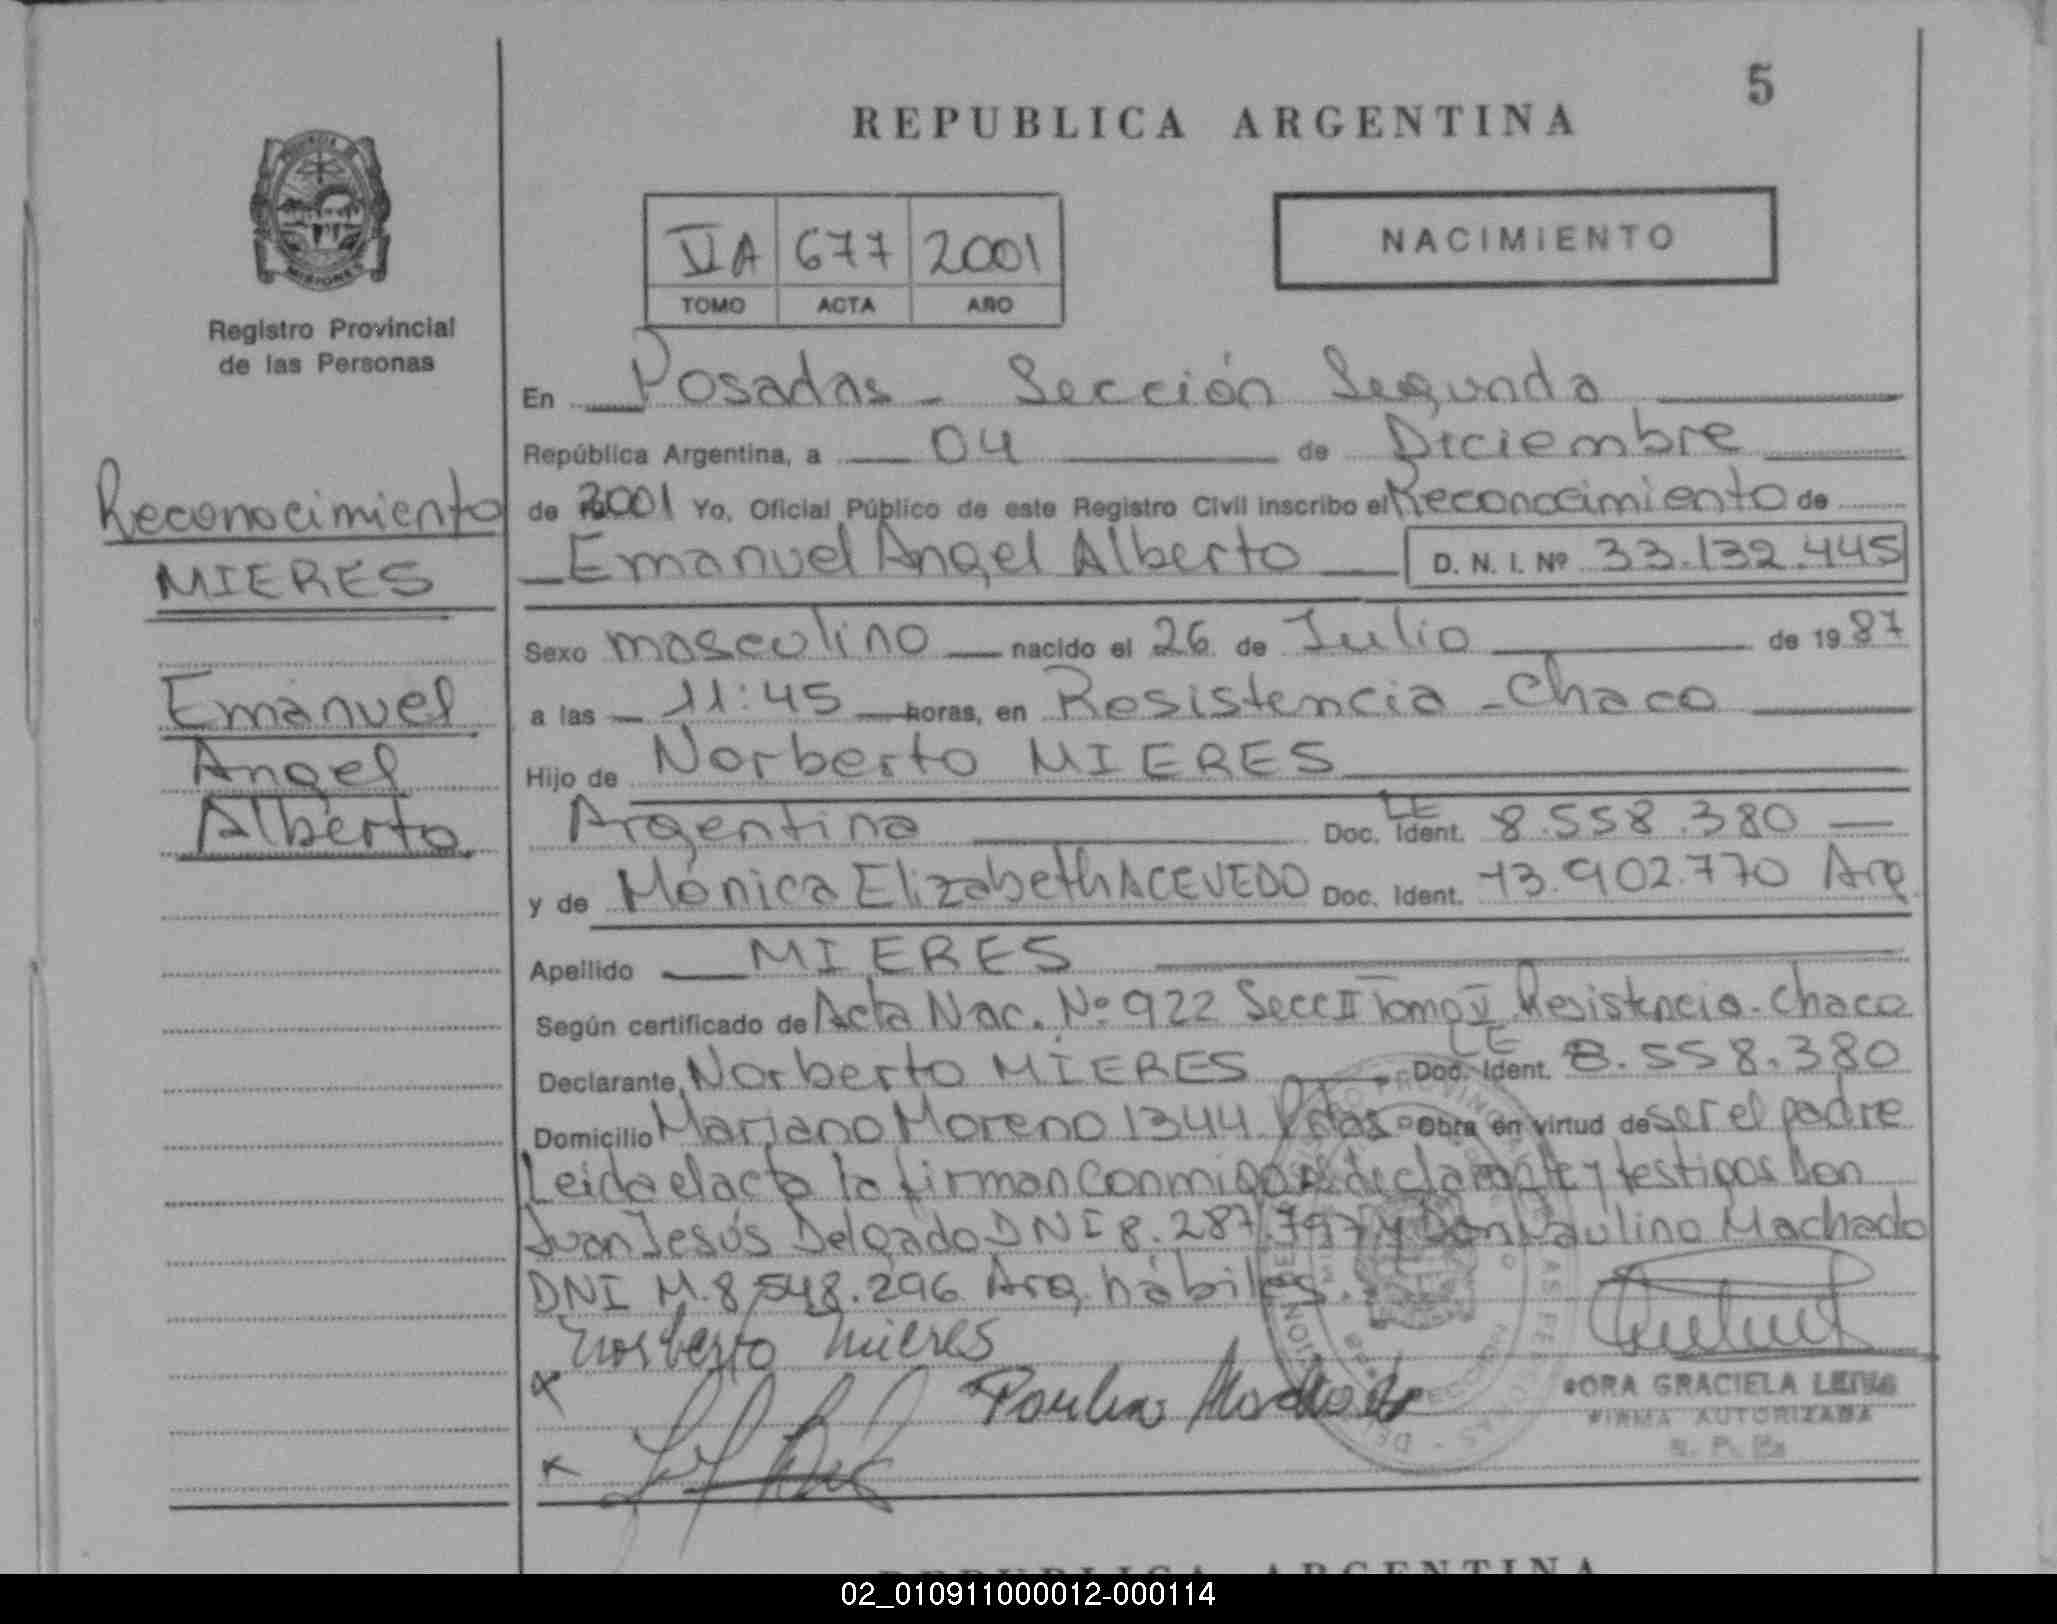 5
REPUBLICA ARGENTINA
NACIMIENTO
VIA 677 2001
TOMO ACTA AÑO
MISIONES
Registro Provincial
de las Personas
Reconocimiento
MIERES
Emanuel
Angel
Alberto
En Posadas - Sección Segunda
República Argentina, a 04 de Diciembre
de 2001 Yo, Oficial Público de este Registro Civil inscribo el Reconocimiento de
Emanuel Angel Alberto D. N. I. Nº 33.132.445
Sexo masculino nacido el 26 de Julio de 1987
a las 11:45 horas, en Resistencia - Chaco
Hijo de Norberto MIERES
Argentina Doc. Ident. LE 8.558.380
y de Mónica Elizabeth ACEVEDO Doc. Ident. 13.902.770 Arg.
Apellido MIERES
Según certificado de Acta Nac. Nº 922 Secc II Tomo V Resistencia - Chaco
Declarante Norberto MIERES Doc. Ident. LE 8.558.380
Domicilio Mariano Moreno 1344 Pdas Obra en virtud de ser el padre
Leida el acta la firman conmigo el declarante y testigos Don
Juan Jesús Delgado DNI 8.287.797 y Don Paulino Machado
DNI M.8.548.296 Arg. hábiles.
Norberto Mieres
Paulino Machado
DORA GRACIELA LEIVA
FIRMA AUTORIZADA
R. P. Ps
REPUBLICA ARGENTINA
02_010911000012-000114